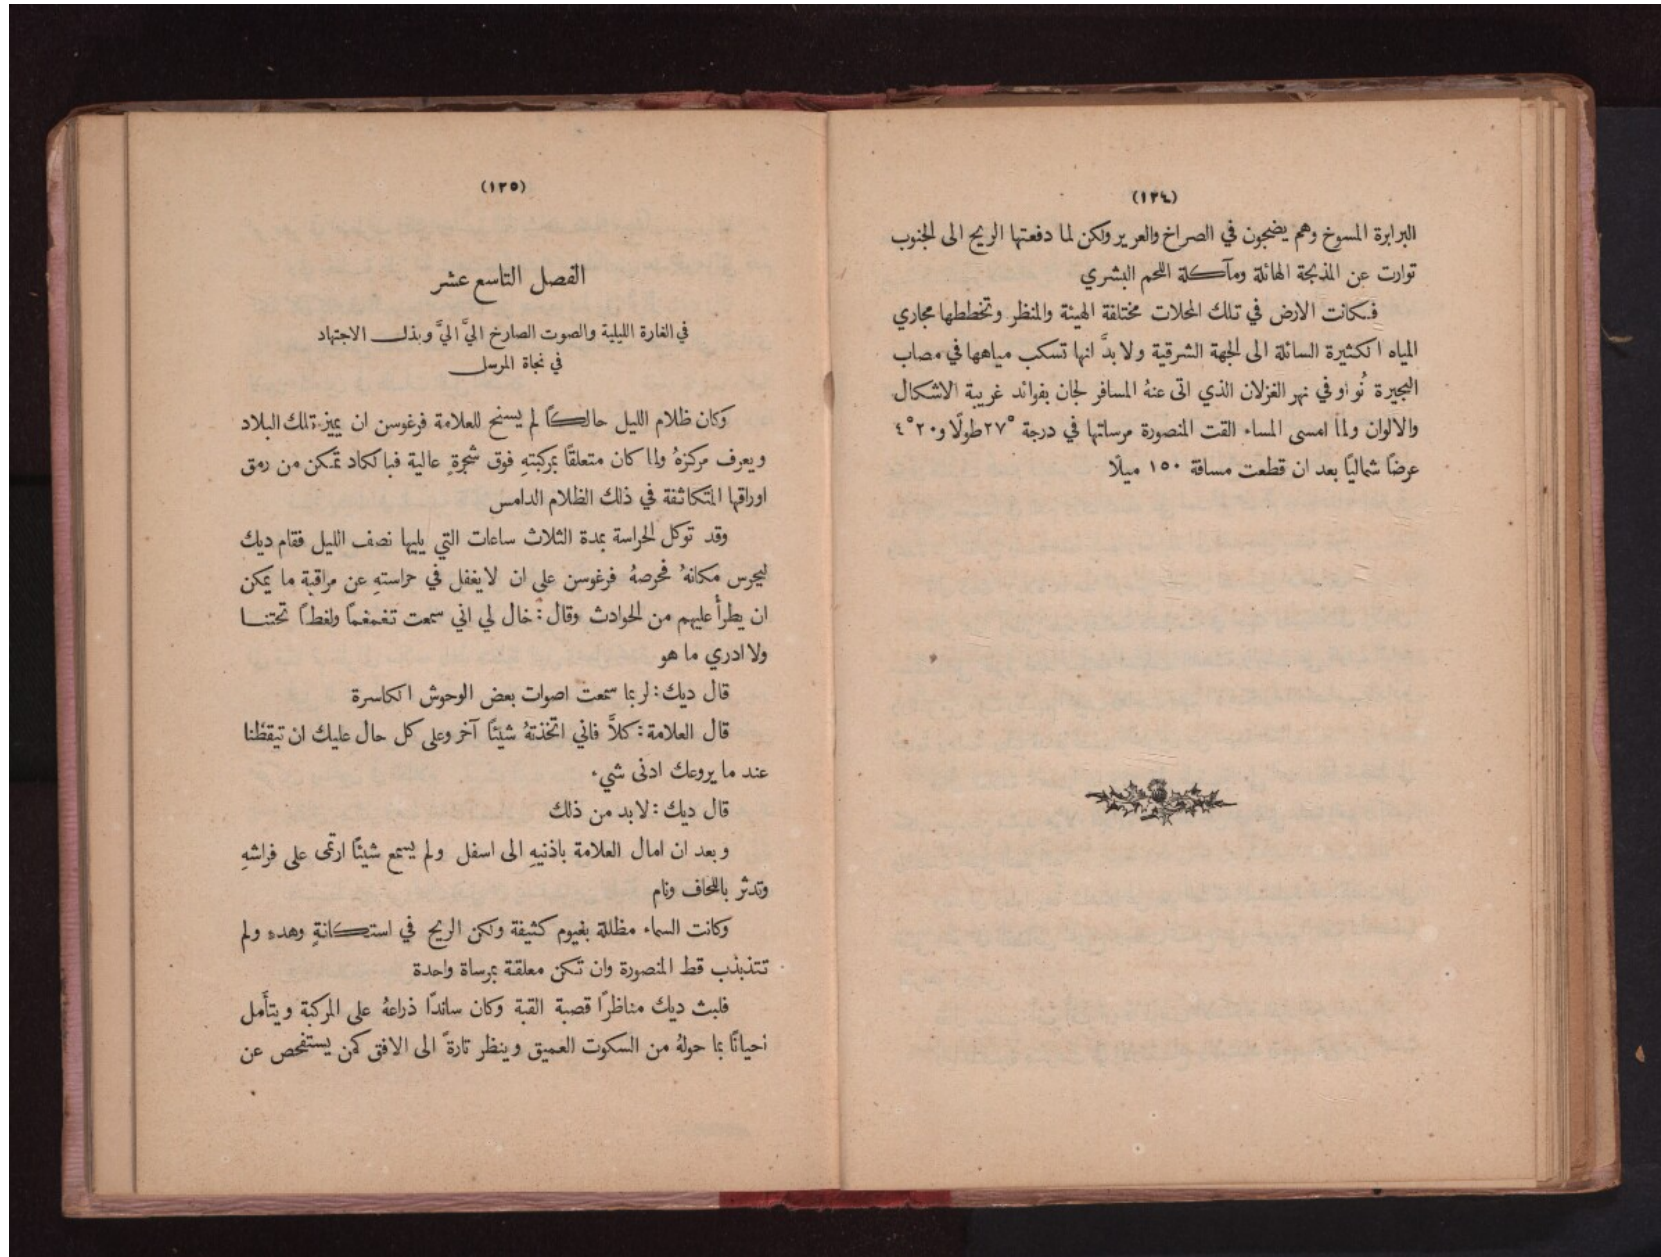 (١٣٤)
البرابرة المسوخ وهم يضجون في الصراخ والعرير ولكن لما دفعتها الريح الى الجنوب
توارت عن المذبحة الهائلة ومآكلة اللحم البشري
فكانت الارض في تلك المحلات مختلفة الهيئة والمنظر وتخططها مجاري
المياه الكثيرة السائلة الى الجهة الشرقية ولا بدَّ انها تسكب مياهها في مصاب
البحيرة نُو او في نهر الغزلان الذي اتى عنهُ المسافر لجان بفوائد غريبة الاشكال
والالوان ولما امسى المساء القت المنصورة مرساتها في درجة °٢٧ طولًا و٢٠ °٤
عرضًا شماليًا بعد ان قطعت مسافة ١٥٠ ميلًا
(١٣٥)
الفصل التاسع عشر
في الغارة الليلية والصوت الصارخ اليَّ اليَّ وبذل الاجتهاد
في نجاة المرسل
وكان ظلام الليل حالكًا لم يسنح للعلامة فرغوسن ان يميز تلك البلاد
ويعرف مركزهُ ولما كان متعلقًا بمركبتهِ فوق شجرةٍ عالية فبالكاد تمكن من رمق
اوراقها المتكاثفة في ذلك الظلام الدامس
وقد توكل لحراسة بمدة الثلاث ساعات التي يليها نصف الليل فقام ديك
ليحرس مكانهُ فحرصهُ فرغوسن على ان لا يغفل في حراستهِ عن مراقبة ما يمكن
ان يطرأ عليهم من الحوادث وقال: خال لي اني سمعت تغمغمًا ولغطًا تحتنا
ولا ادري ما هو
قال ديك: لربما سمعت اصوات بعض الوحوش الكاسرة
قال العلامة: كلاَّ فاني اتخذتهُ شيئًا آخر وعلى كل حال عليك ان تيقظنا
عند ما يروعك ادنى شيء
قال ديك: لا بد من ذلك
وبعد ان امال العلامة باذنيهِ الى اسفل ولم يسمع شيئًا ارتمى على فراشهِ
وتدثر باللحاف ونام
وكانت السماء مظللة بغيوم كثيفة ولكن الريح في استكانةٍ وهدءٍ ولم
تتذبذب قط المنصورة وان تكن معلقة بمرساة واحدة
فلبث ديك مناظرًا قصبة القبة وكان ساندًا ذراعهُ على المركبة ويتأمل
احيانًا بما حولهُ من السكوت العميق وينظر تارةً الى الافق كمن يستفحص عن